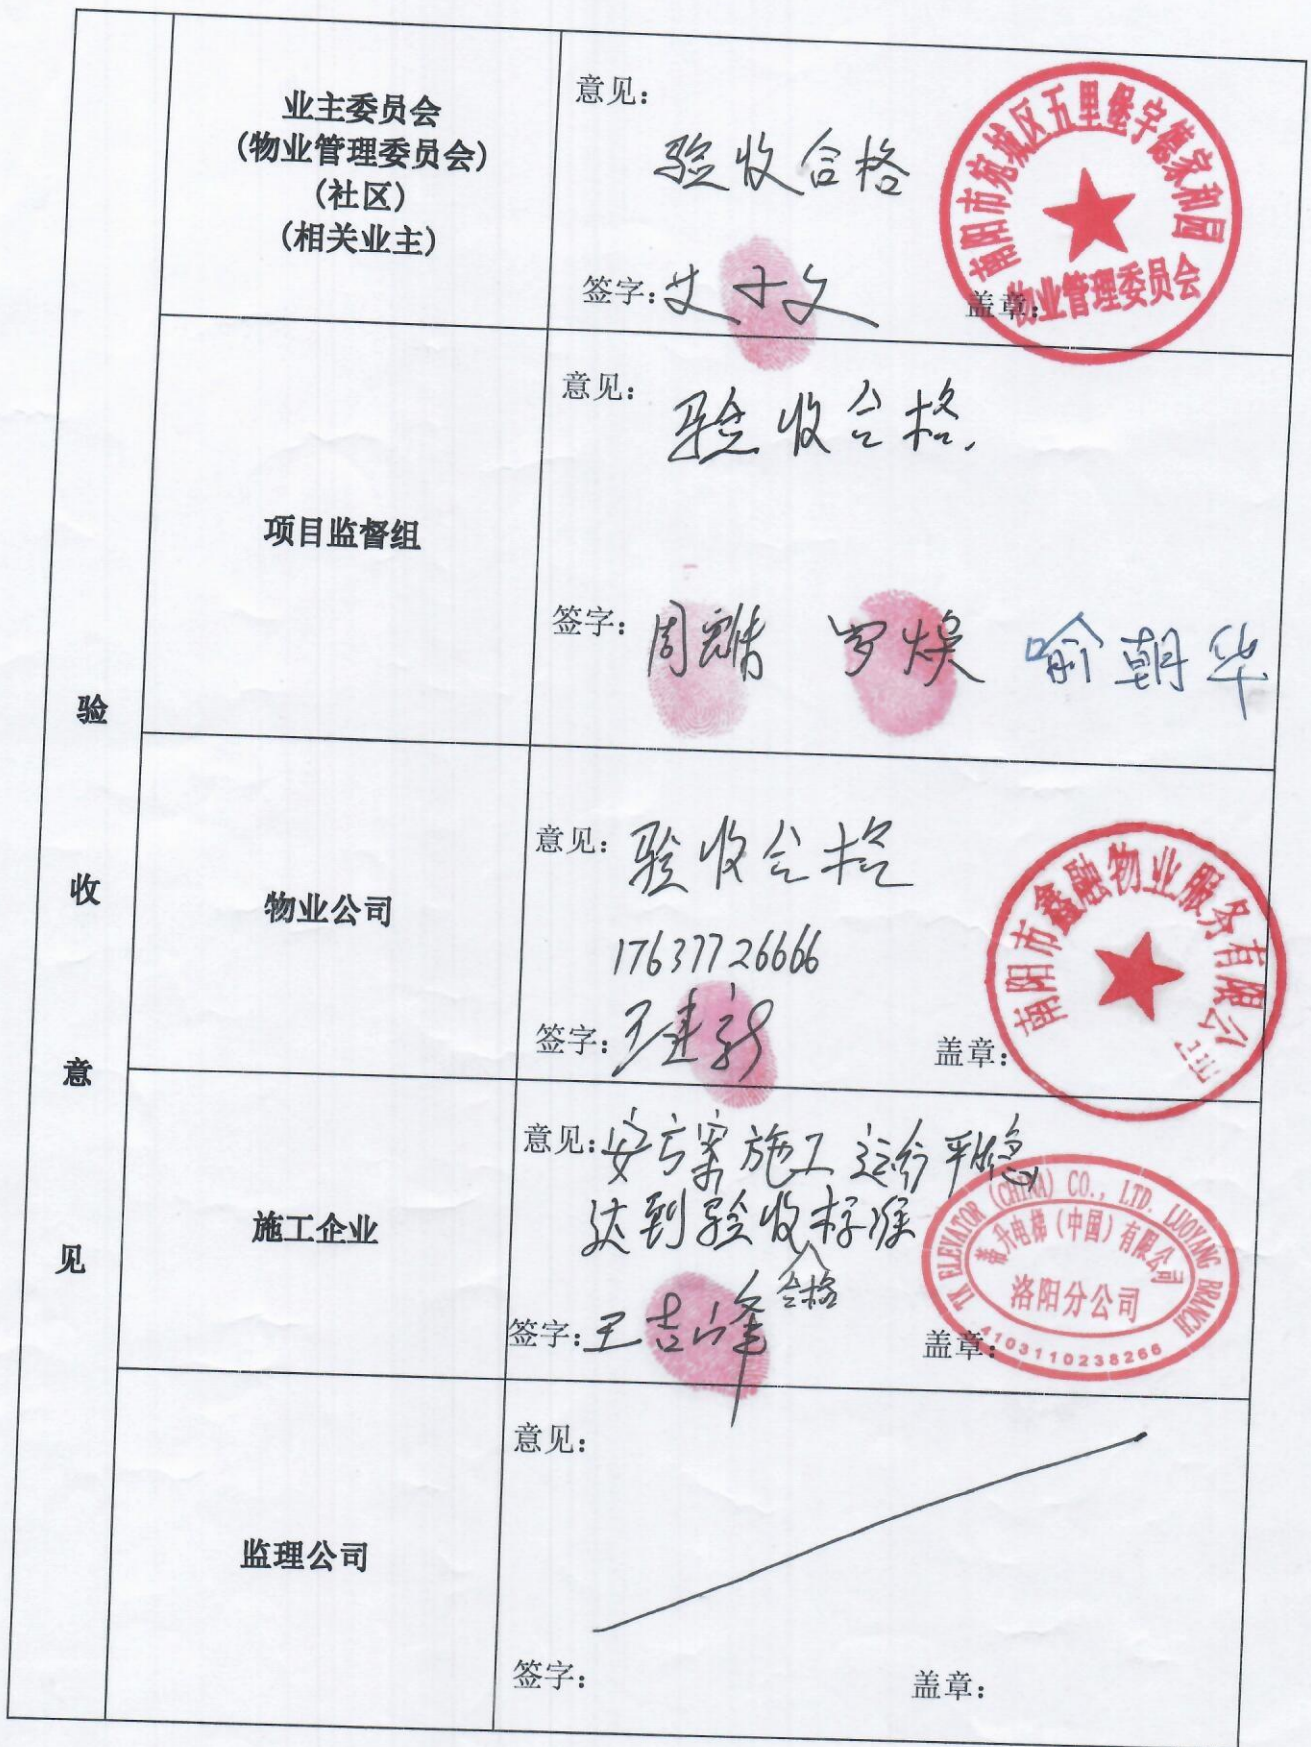 验收意见
业主委员会
(物业管理委员会)
(社区)
(相关业主)
意见：
验收合格
签字：
盖章：
南阳市宛城区五里堡宇信家和园
物业管理委员会
项目监督组
意见：
验收合格.
签字： 罗焕 喻朝华
物业公司
意见：验收合格
17637726666
签字：王建新
盖章：
南阳市鑫融物业服务有限公司
施工企业
意见：按方案施工 运行平稳
达到验收标准
合格
签字：王吉峰
盖章：
TK ELEVATOR (CHINA) CO., LTD. LUOYANG BRANCH
蒂升电梯（中国）有限公司
洛阳分公司
4103110238266
监理公司
意见：
签字：
盖章：